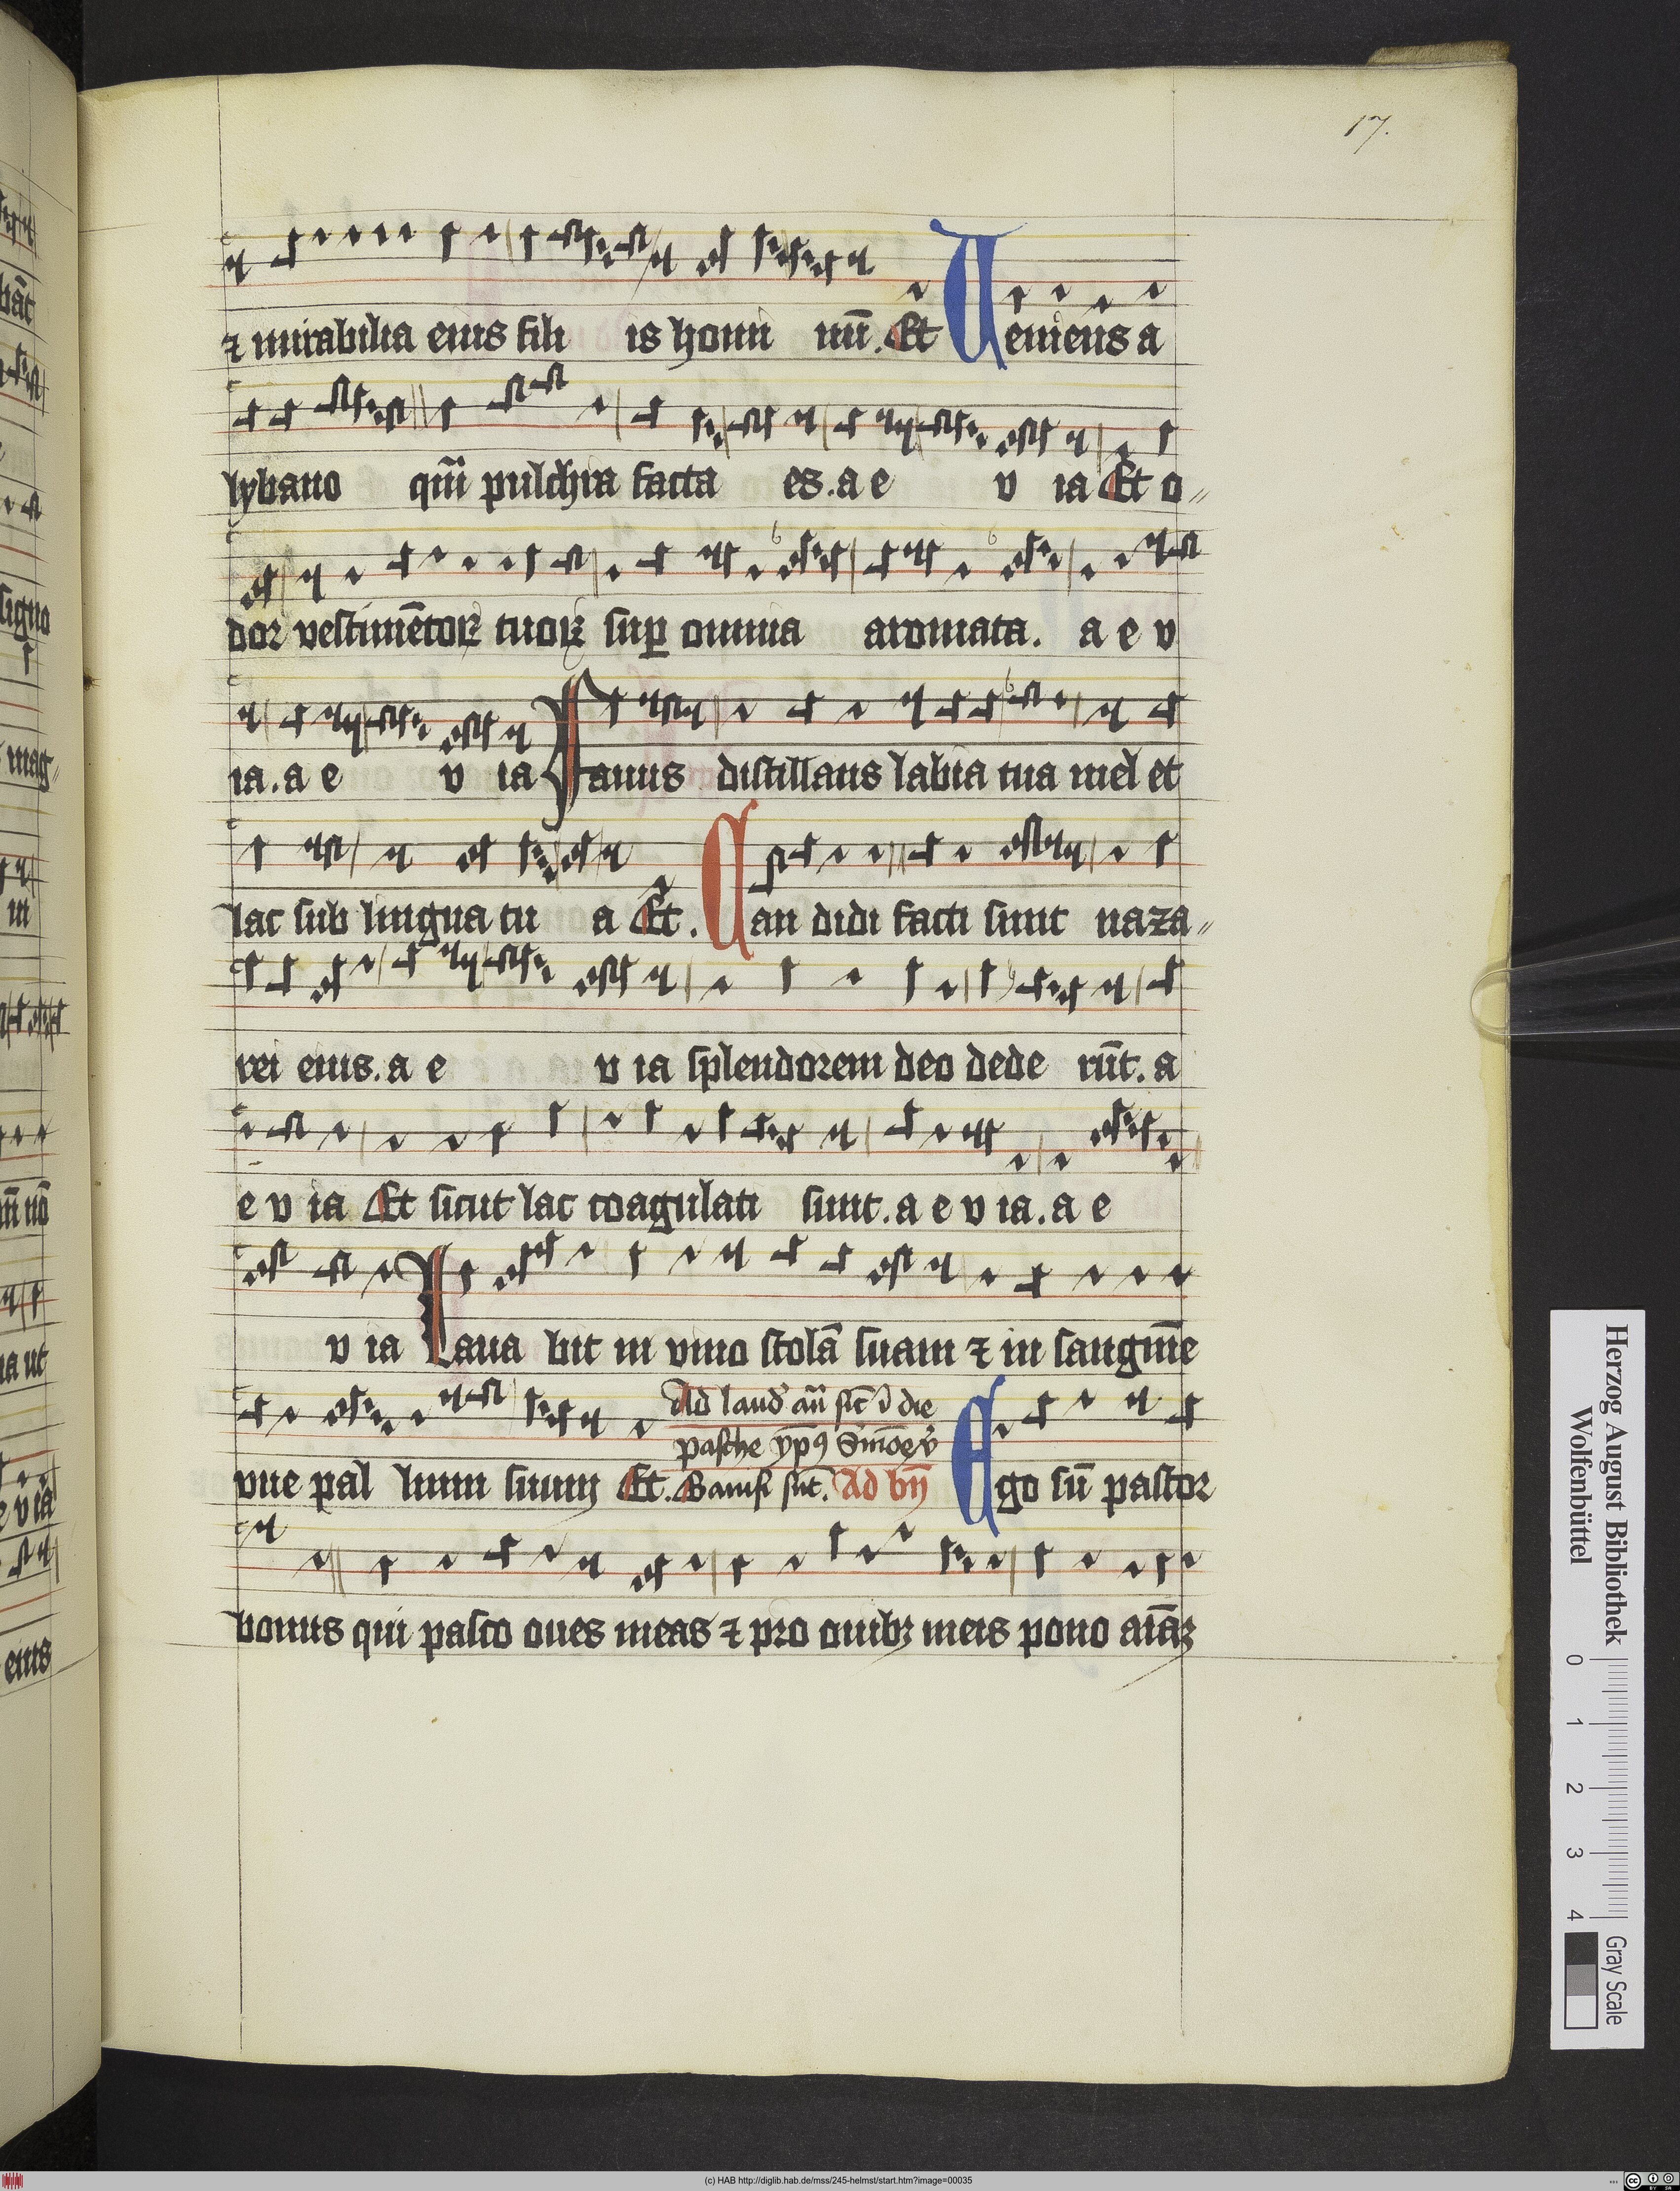 17.
⁊ mirabilia eius fili is homi nū. Et Ueniēs a
lybano qm̄ pulchra facta es. a e v ia Et o
dor vestimētoꝝ tuoꝝ suꝑ omnia aromata. a e v
ia. a e v ia Fauus distillans labia tua mel et
lac sub lingua tu a Et. Can didi facti sunt naza
rei eius. a e v ia splendorem deo dede rūt. a
e v ia Et sicut lac coagulati sunt. a e v ia. a e
v ia Laua bit in vino stolā suam ⁊ in sangūe
vue pal lium suum Et.
Ad laud an̄ sic̄ ī die
pasche
sūt. Ad bn̄ Ego sū pastor
bonus qui pasco oues meas ⁊ pro ouibꝫ meis pono aīaꝫ
bāt
signo
mag
in
nō
ia ut
e v ia
eius
Herzog August Bibliothek
Wolfenbüttel
0 1 2 3 4
Gray Scale
(c) HAB http://diglib.hab.de/mss/245-helmst/start.htm?image=00035